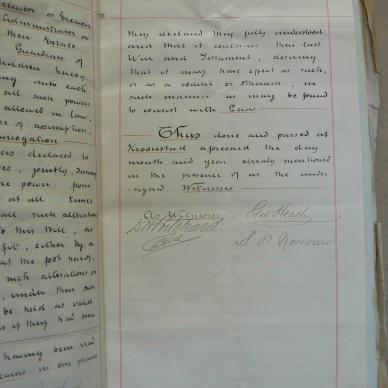 ecutor or Executor
Administrator or
their Estate
Guardian of
children hereby
ing unto each
all such powers
allowed in law,
of assumption,
surrogation
declared to
jointly, during
power from
at all times
all such alterations
this Will, as
fit, either by a
at the foot hereof,
such alterations or
under their own
be held as valid
as if they had been
having been read
in our presence
they declared they fully understood
and that it contains their last
Will and Testament, desiring
that it may have effect as such,
or as a codicil or otherwise, in
such manner as may be found
to consist with Law
Thus done and passed at
Kroonstad aforesaid the day
month and year already mentioned
in the presence of us, the under-
signed Witnesses
As Witnesses